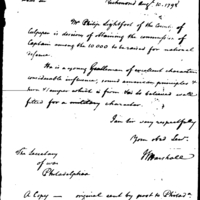 Richmond Augt 10. 1798
Dear Sir
Mr Philip Lightfoot of the County of
Culpeper is desirous of obtaining the commission of
Captain among the 10 000 to be raised for national
defence.
He is a young Gentleman of excellent character
considerable influence, sound american principles &
is from his believed well
fitted for a military character.
I am Sir very respectfully
Your obed Servt
J Marshall
The Secretary
of war
Philadelphia
A Copy — original sent by post to Philada